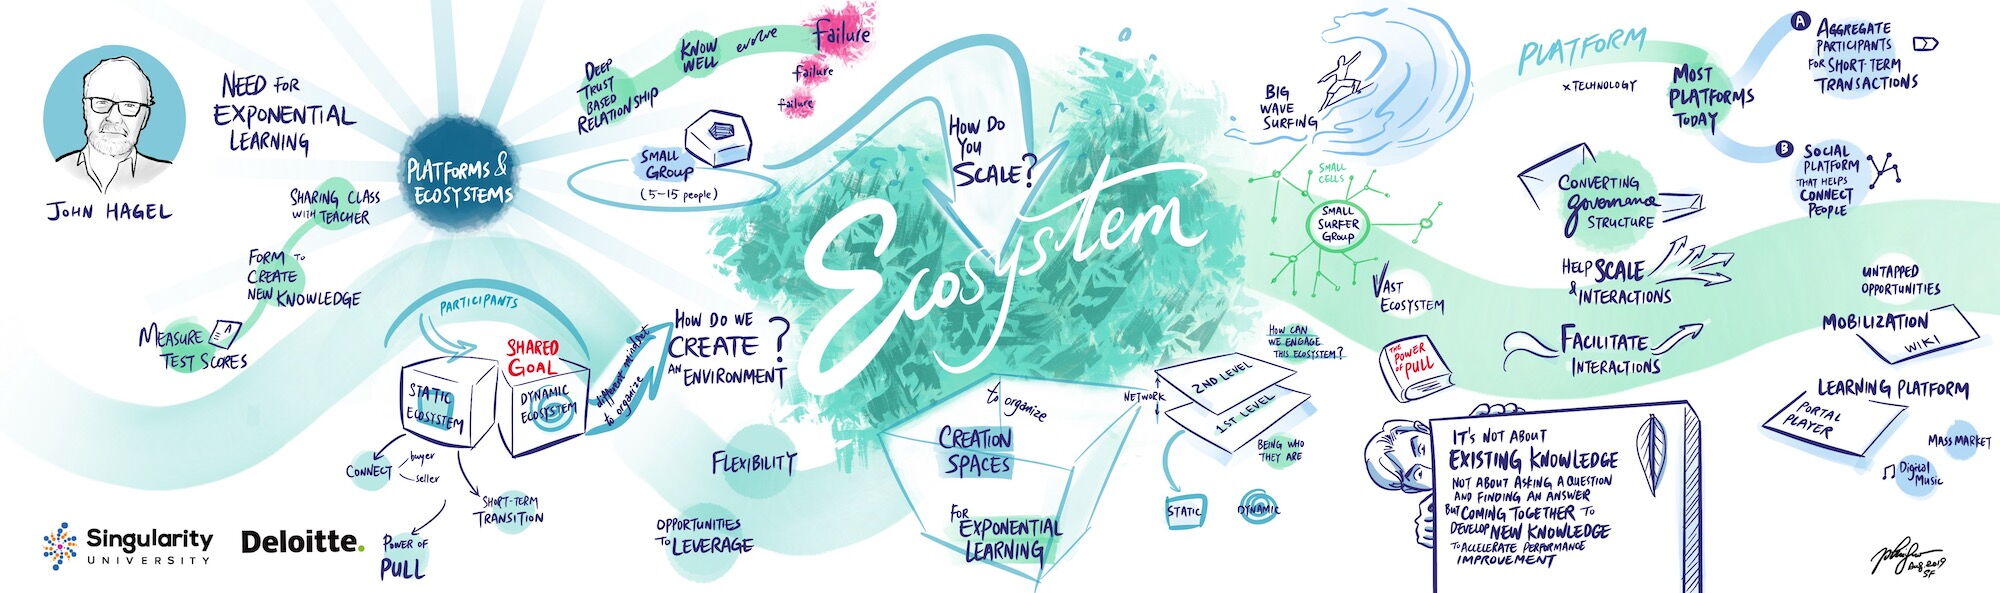 JOHN HAGEL
NEED FOR
EXPONENTIAL
LEARNING
SHARING CLASS
WITH TEACHER
FORM TO
CREATE
NEW KNOWLEDGE
MEASURE
TEST SCORES
A
Singularity
UNIVERSITY
Deloitte.
PLATFORMS &
ECOSYSTEMS
PARTICIPANTS
STATIC
ECOSYSTEM
SHARED
GOAL
DYNAMIC
ECOSYSTEM
CONNECT
buyer
seller
SHORT-TERM
TRANSITION
POWER OF
PULL
different mindset
to organize
HOW DO WE
CREATE
AN ENVIRONMENT
?
DEEP
TRUST
BASED
RELATIONSHIP
KNOW
WELL
evolve
failure
failure
failure
SMALL
GROUP
(5-15 people)
HOW DO
YOU
SCALE?
Ecosystem
FLEXIBILITY
OPPORTUNITIES
TO LEVERAGE
to organize
CREATION
SPACES
FOR
EXPONENTIAL
LEARNING
BIG
WAVE
SURFING
SMALL
CELLS
SMALL
SURFER
GROUP
VAST
ECOSYSTEM
HOW CAN
WE ENGAGE
THIS ECOSYSTEM?
NETWORK
2ND LEVEL
1ST LEVEL
BEING WHO
THEY ARE
STATIC
DYNAMIC
THE
POWER
OF PULL
IT'S NOT ABOUT
EXISTING KNOWLEDGE
NOT ABOUT ASKING A QUESTION
AND FINDING AN ANSWER
BUT COMING TOGETHER TO
DEVELOP NEW KNOWLEDGE
TO ACCELERATE PERFORMANCE
IMPROVEMENT
PLATFORM
x TECHNOLOGY
MOST
PLATFORMS
TODAY
A
AGGREGATE
PARTICIPANTS
FOR SHORT-TERM
TRANSACTIONS
B
SOCIAL
PLATFORM
THAT HELPS
CONNECT
PEOPLE
CONVERTING
governance
STRUCTURE
HELP SCALE
& INTERACTIONS
FACILITATE
INTERACTIONS
UNTAPPED
OPPORTUNITIES
MOBILIZATION
WIKI
LEARNING PLATFORM
PORTAL
PLAYER
MASS MARKET
Digital
Music
Aug. 2019
SF